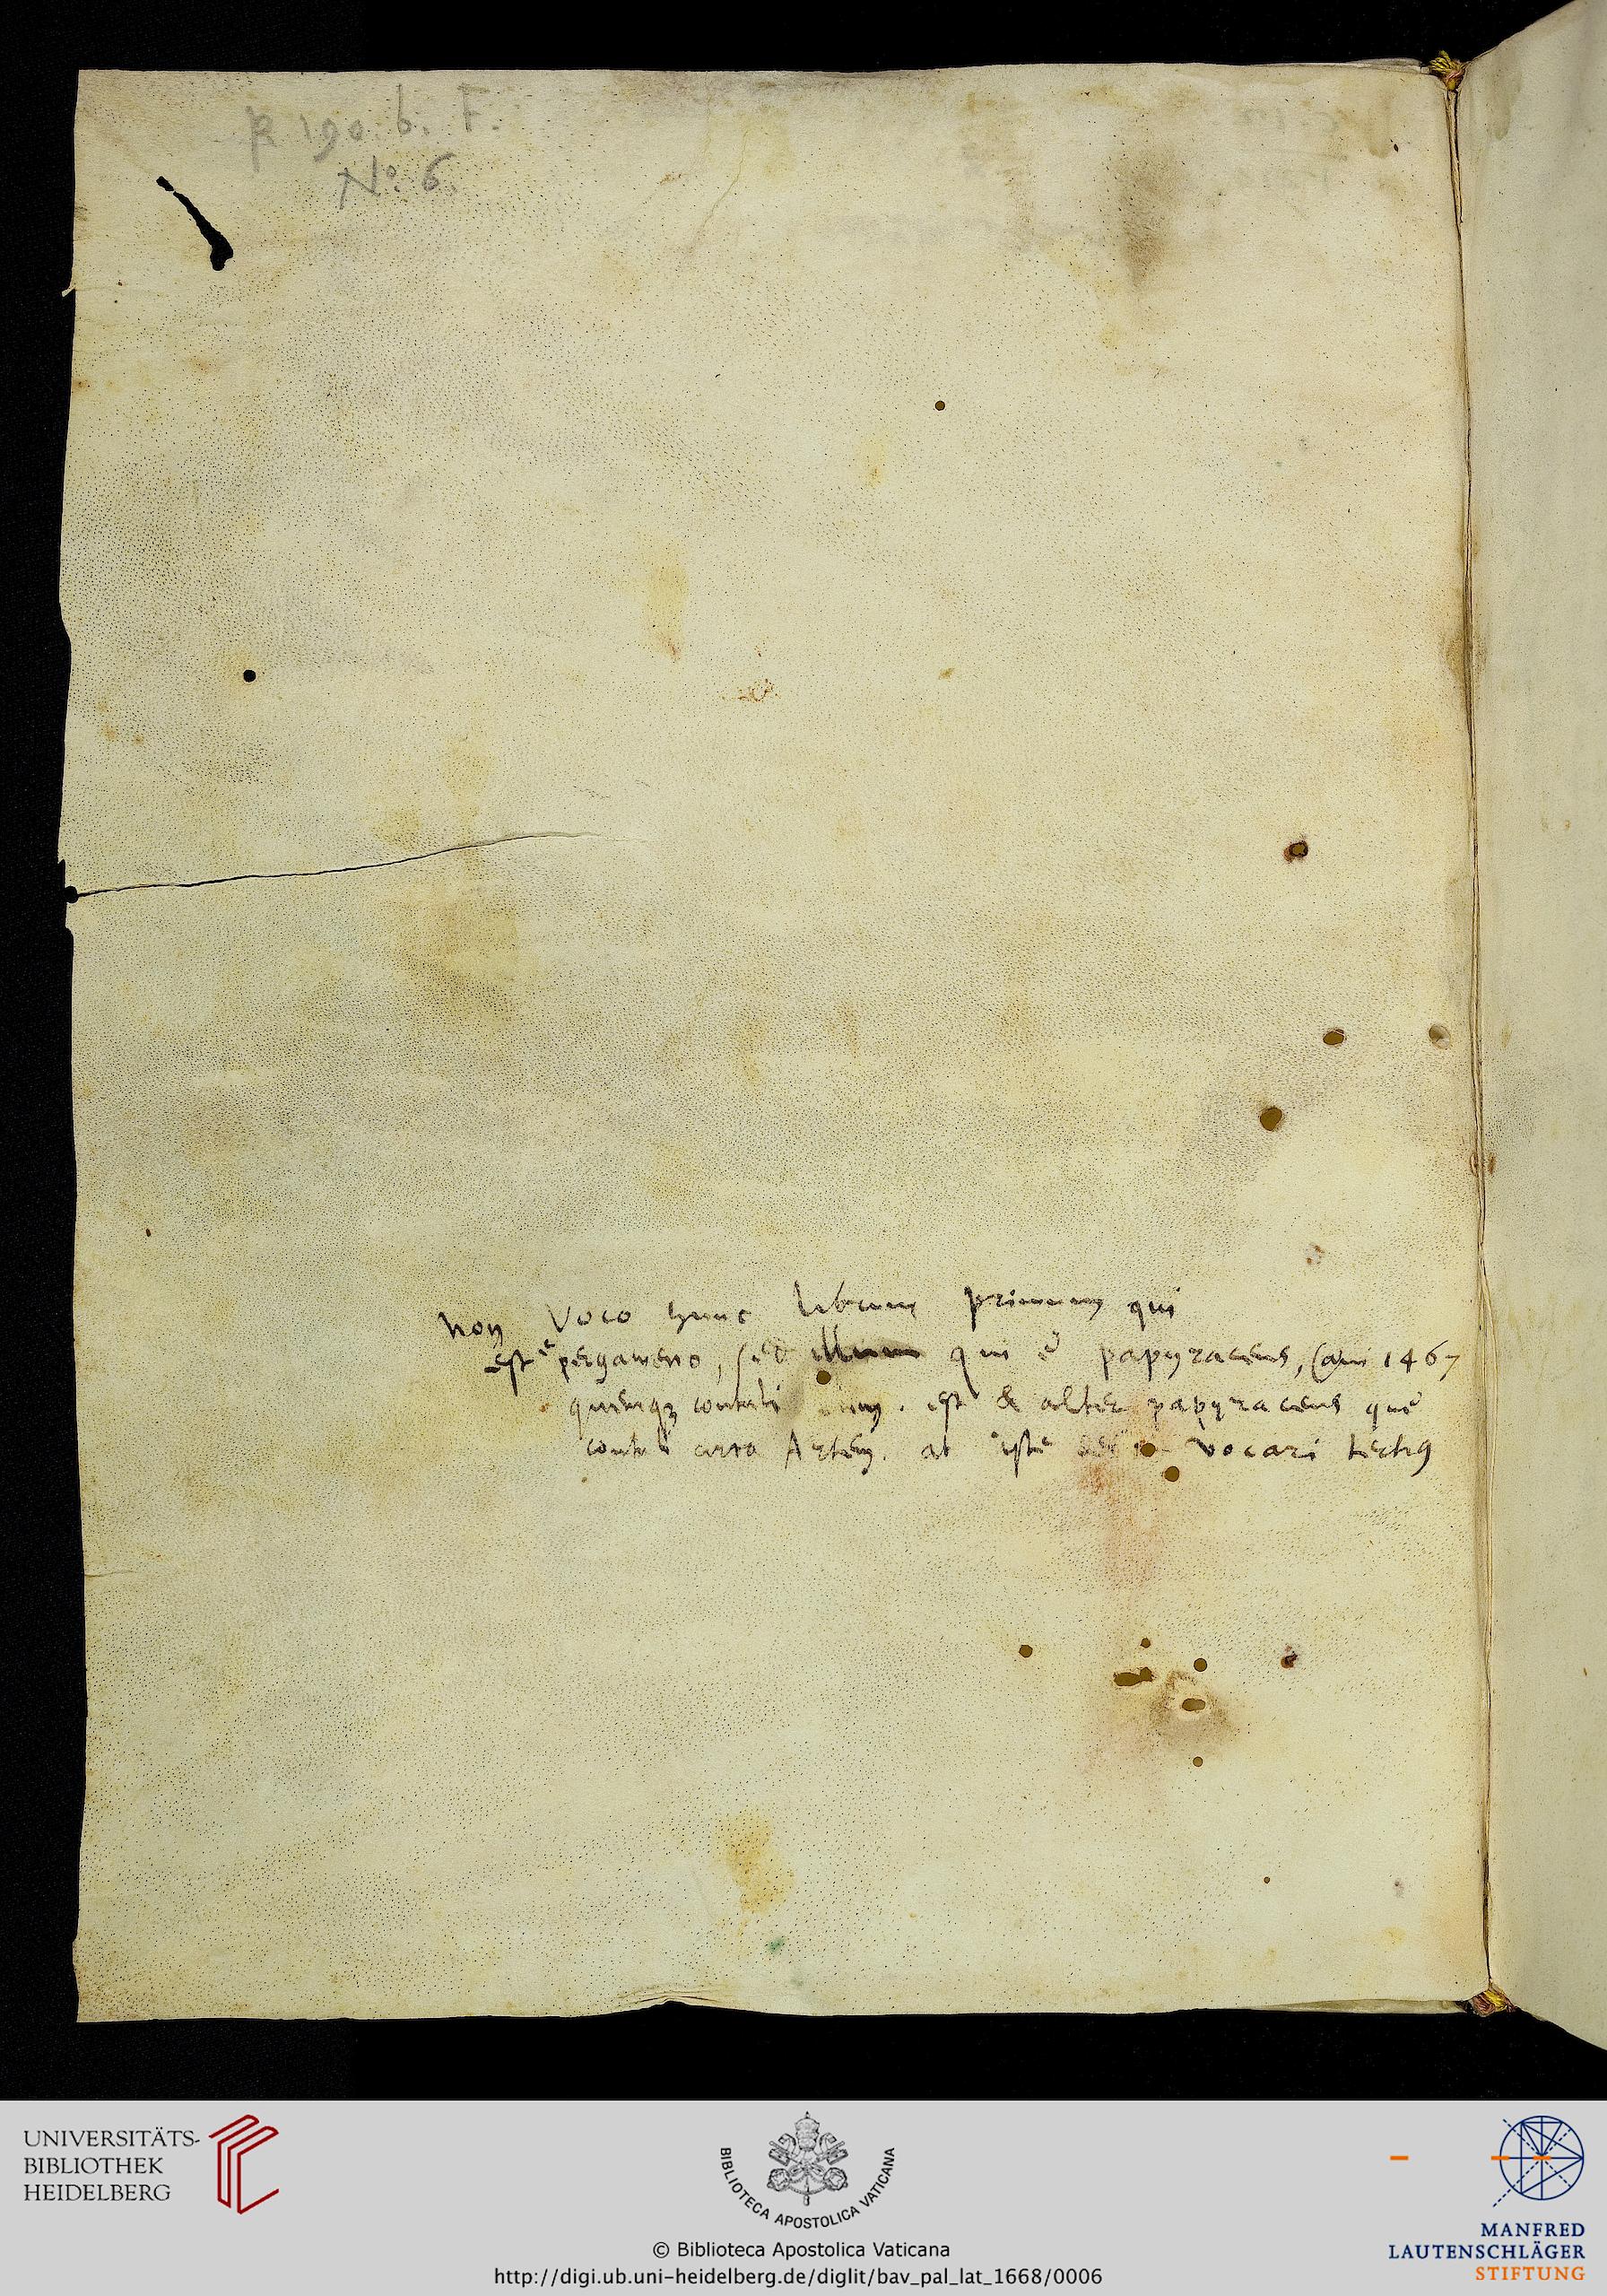 R 190. b. F.
Nº. 6.
non voco hunc librum primum qui
est ē pergameno, sed illum qui ē papyraceus, (ani 1467
quemqȝ contuli . est & alter papyraceus quē
circa Artem. at iste vocari tertiꝰ
UNIVERSITÄTS-
BIBLIOTHEK
HEIDELBERG
BIBLIOTECA APOSTOLICA VATICANA
© Biblioteca Apostolica Vaticana
http://digi.ub.uni-heidelberg.de/diglit/bav_pal_lat_1668/0006
MANFRED
LAUTENSCHLÄGER
STIFTUNG